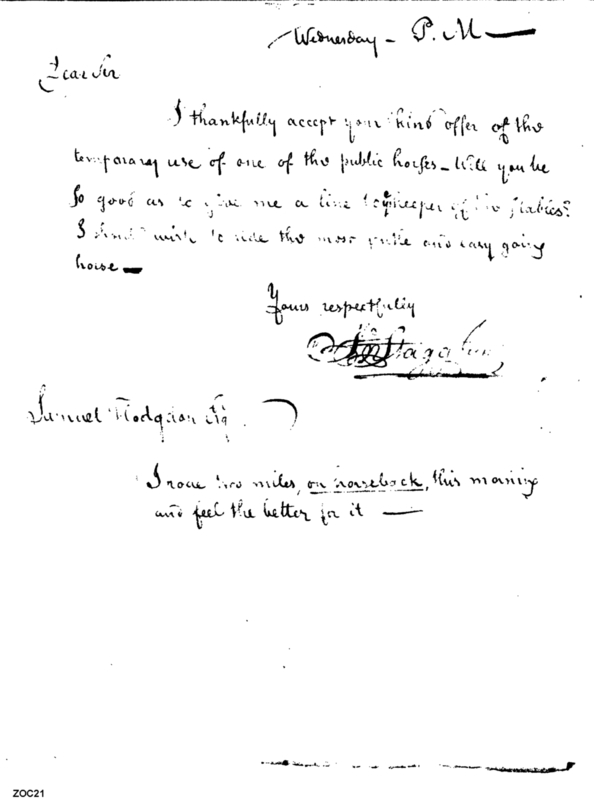 Wednesday - P. M -
Dear Sir
I thankfully accept your kind offer of the
temporary use of one of the public horses - Will you be
so good as to give me a line to ye keeper of the stables?
I shod wish to ride the most gentle and easy going
horse -
Yours respectfully
Jn Stagg
Samuel Hodgdon Esqr
I rode two miles, on horseback, this morning
and feel the better for it -
ZOC21